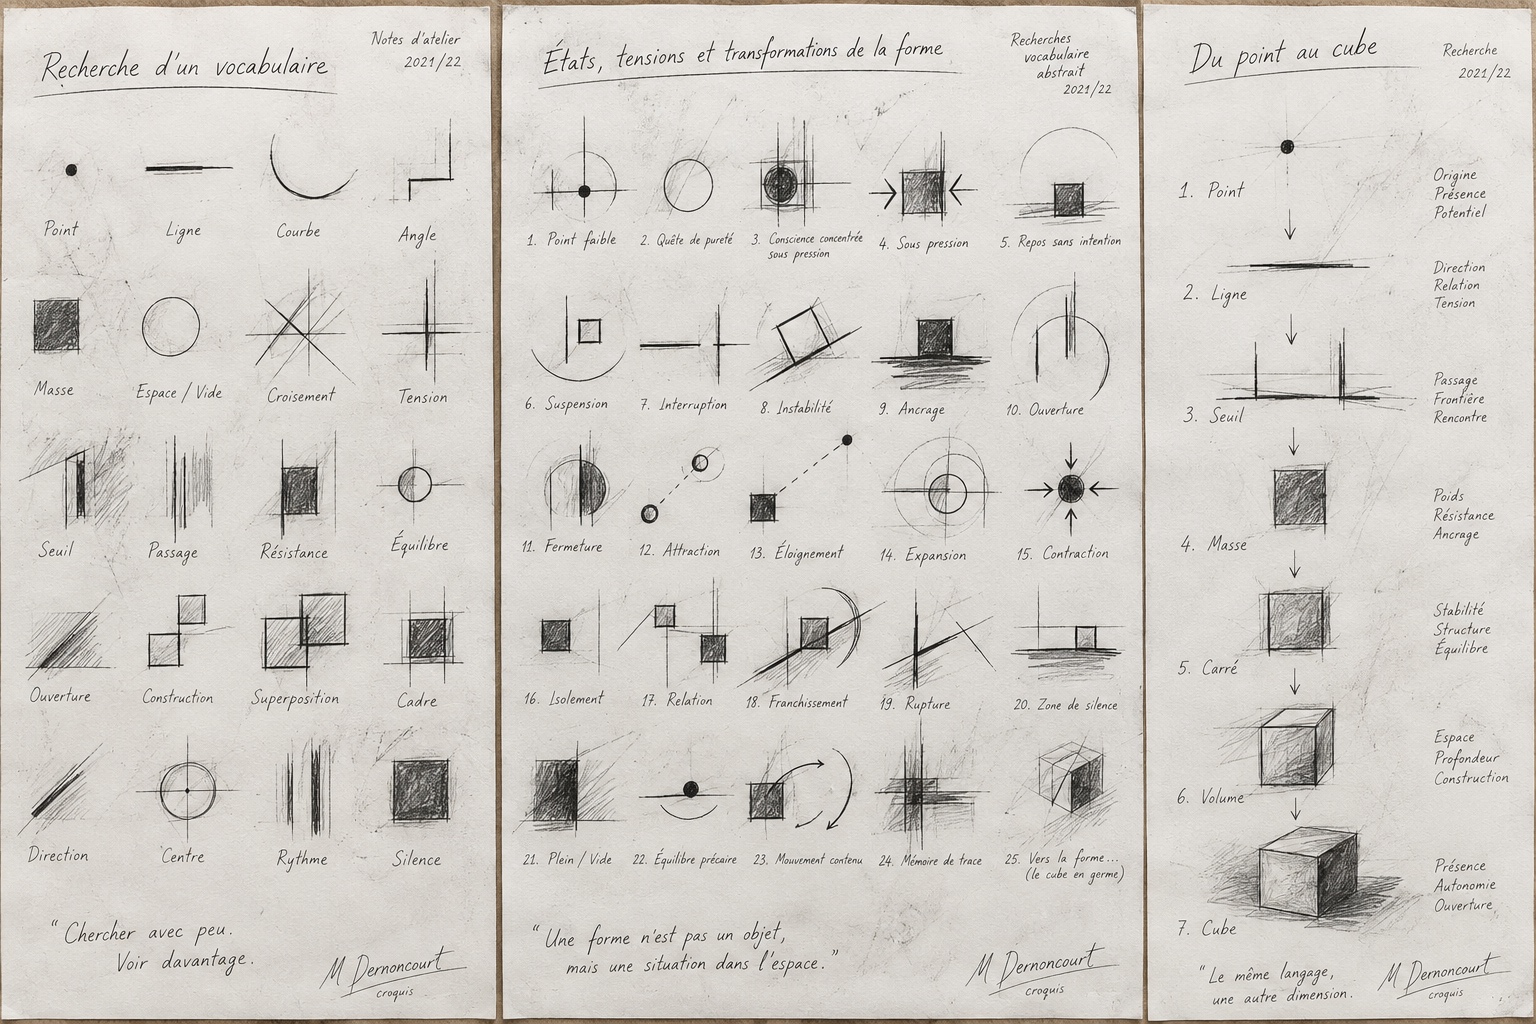 Recherche d'un vocabulaire
Notes d'atelier
2021/22
Point
Ligne
Courbe
Angle
Masse
Espace / Vide
Croisement
Tension
Seuil
Passage
Résistance
Équilibre
Ouverture
Construction
Superposition
Cadre
Direction
Centre
Rythme
Silence
"Chercher avec peu.
Voir davantage.
M Dernoncourt
croquis
États, tensions et transformations de la forme
Recherches
vocabulaire
abstrait
2021/22
1. Point faible
2. Quête de pureté
3. Conscience concentrée
sous pression
4. Sous pression
5. Repos sans intention
6. Suspension
7. Interruption
8. Instabilité
9. Ancrage
10. Ouverture
11. Fermeture
12. Attraction
13. Éloignement
14. Expansion
15. Contraction
16. Isolement
17. Relation
18. Franchissement
19. Rupture
20. Zone de silence
21. Plein / Vide
22. Équilibre précaire
23. Mouvement contenu
24. Mémoire de trace
25. Vers la forme...
(le cube en germe)
"Une forme n'est pas un objet,
mais une situation dans l'espace."
M Dernoncourt
croquis
Du point au cube
Recherche
2021/22
1. Point
Origine
Présence
Potentiel
2. Ligne
Direction
Relation
Tension
3. Seuil
Passage
Frontière
Rencontre
4. Masse
Poids
Résistance
Ancrage
5. Carré
Stabilité
Structure
Équilibre
6. Volume
Espace
Profondeur
Construction
7. Cube
Présence
Autonomie
Ouverture
"Le même langage,
une autre dimension.
M Dernoncourt
croquis